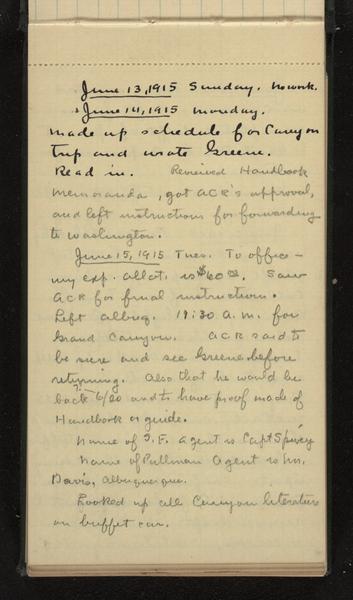 June 13, 1915 Sunday. No work.
June 14, 1915 Monday.
Made up schedule for Canyon
trip and wrote Greene.
Read in. Reviewed Handbook
memoranda, got ACR's approval,
and left instructions for forwarding
to Washington.
June 15, 1915 Tues. To office –
my exp. allot. is $60 00. Saw
ACR for final instructions.
Left Albuq. 11:30 a.m. for
Grand Canyon. ACR said to
be sure and see Greene before
returning. Also that he would be
back 6/20 and to have proof made of
Handbook or guide.
Name of S.F. Agent is Capt Spivey
Name of Pullman Agent is Mr.
Davis, Albuquerque.
Looked up all Canyon literature
on buffet car.